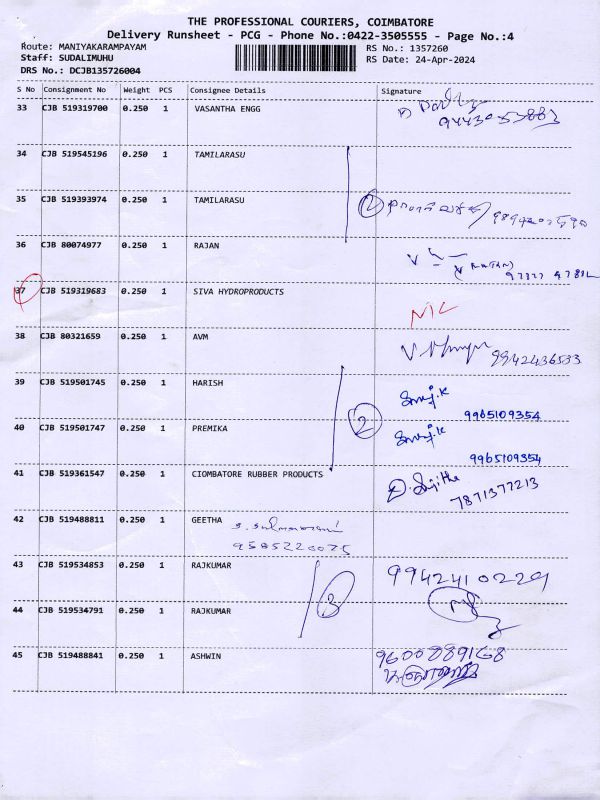 THE PROFESSIONAL COURIERS, COIMBATORE
Delivery Runsheet - PCG - Phone No.:0422-3505555 - Page No.:4
Route: MANIYAKARAMPAYAM RS No.: 1357260
Staff: SUDALIMUHU RS Date: 24-Apr-2024
DRS No.: DCJB135726004
S No Consignment No Weight PCS Consignee Details Signature
33 CJB 519319700 0.250 1 VASANTHA ENGG
34 CJB 519545196 0.250 1 TAMILARASU
35 CJB 519393974 0.250 1 TAMILARASU 2
36 CJB 80074977 0.250 1 RAJAN
37 CJB 519319683 0.250 1 SIVA HYDROPRODUCTS
NIL
38 CJB 80321659 0.250 1 AVM
9942436533
39 CJB 519501745 0.250 1 HARISH
2 9965109354
40 CJB 519501747 0.250 1 PREMIKA
9965109354
41 CJB 519361547 0.250 1 CIOMBATORE RUBBER PRODUCTS
7871377213
42 CJB 519488811 0.250 1 GEETHA
9585220075
43 CJB 519534853 0.250 1 RAJKUMAR 9942410229
3
44 CJB 519534791 0.250 1 RAJKUMAR
45 CJB 519488841 0.250 1 ASHWIN 9600889168